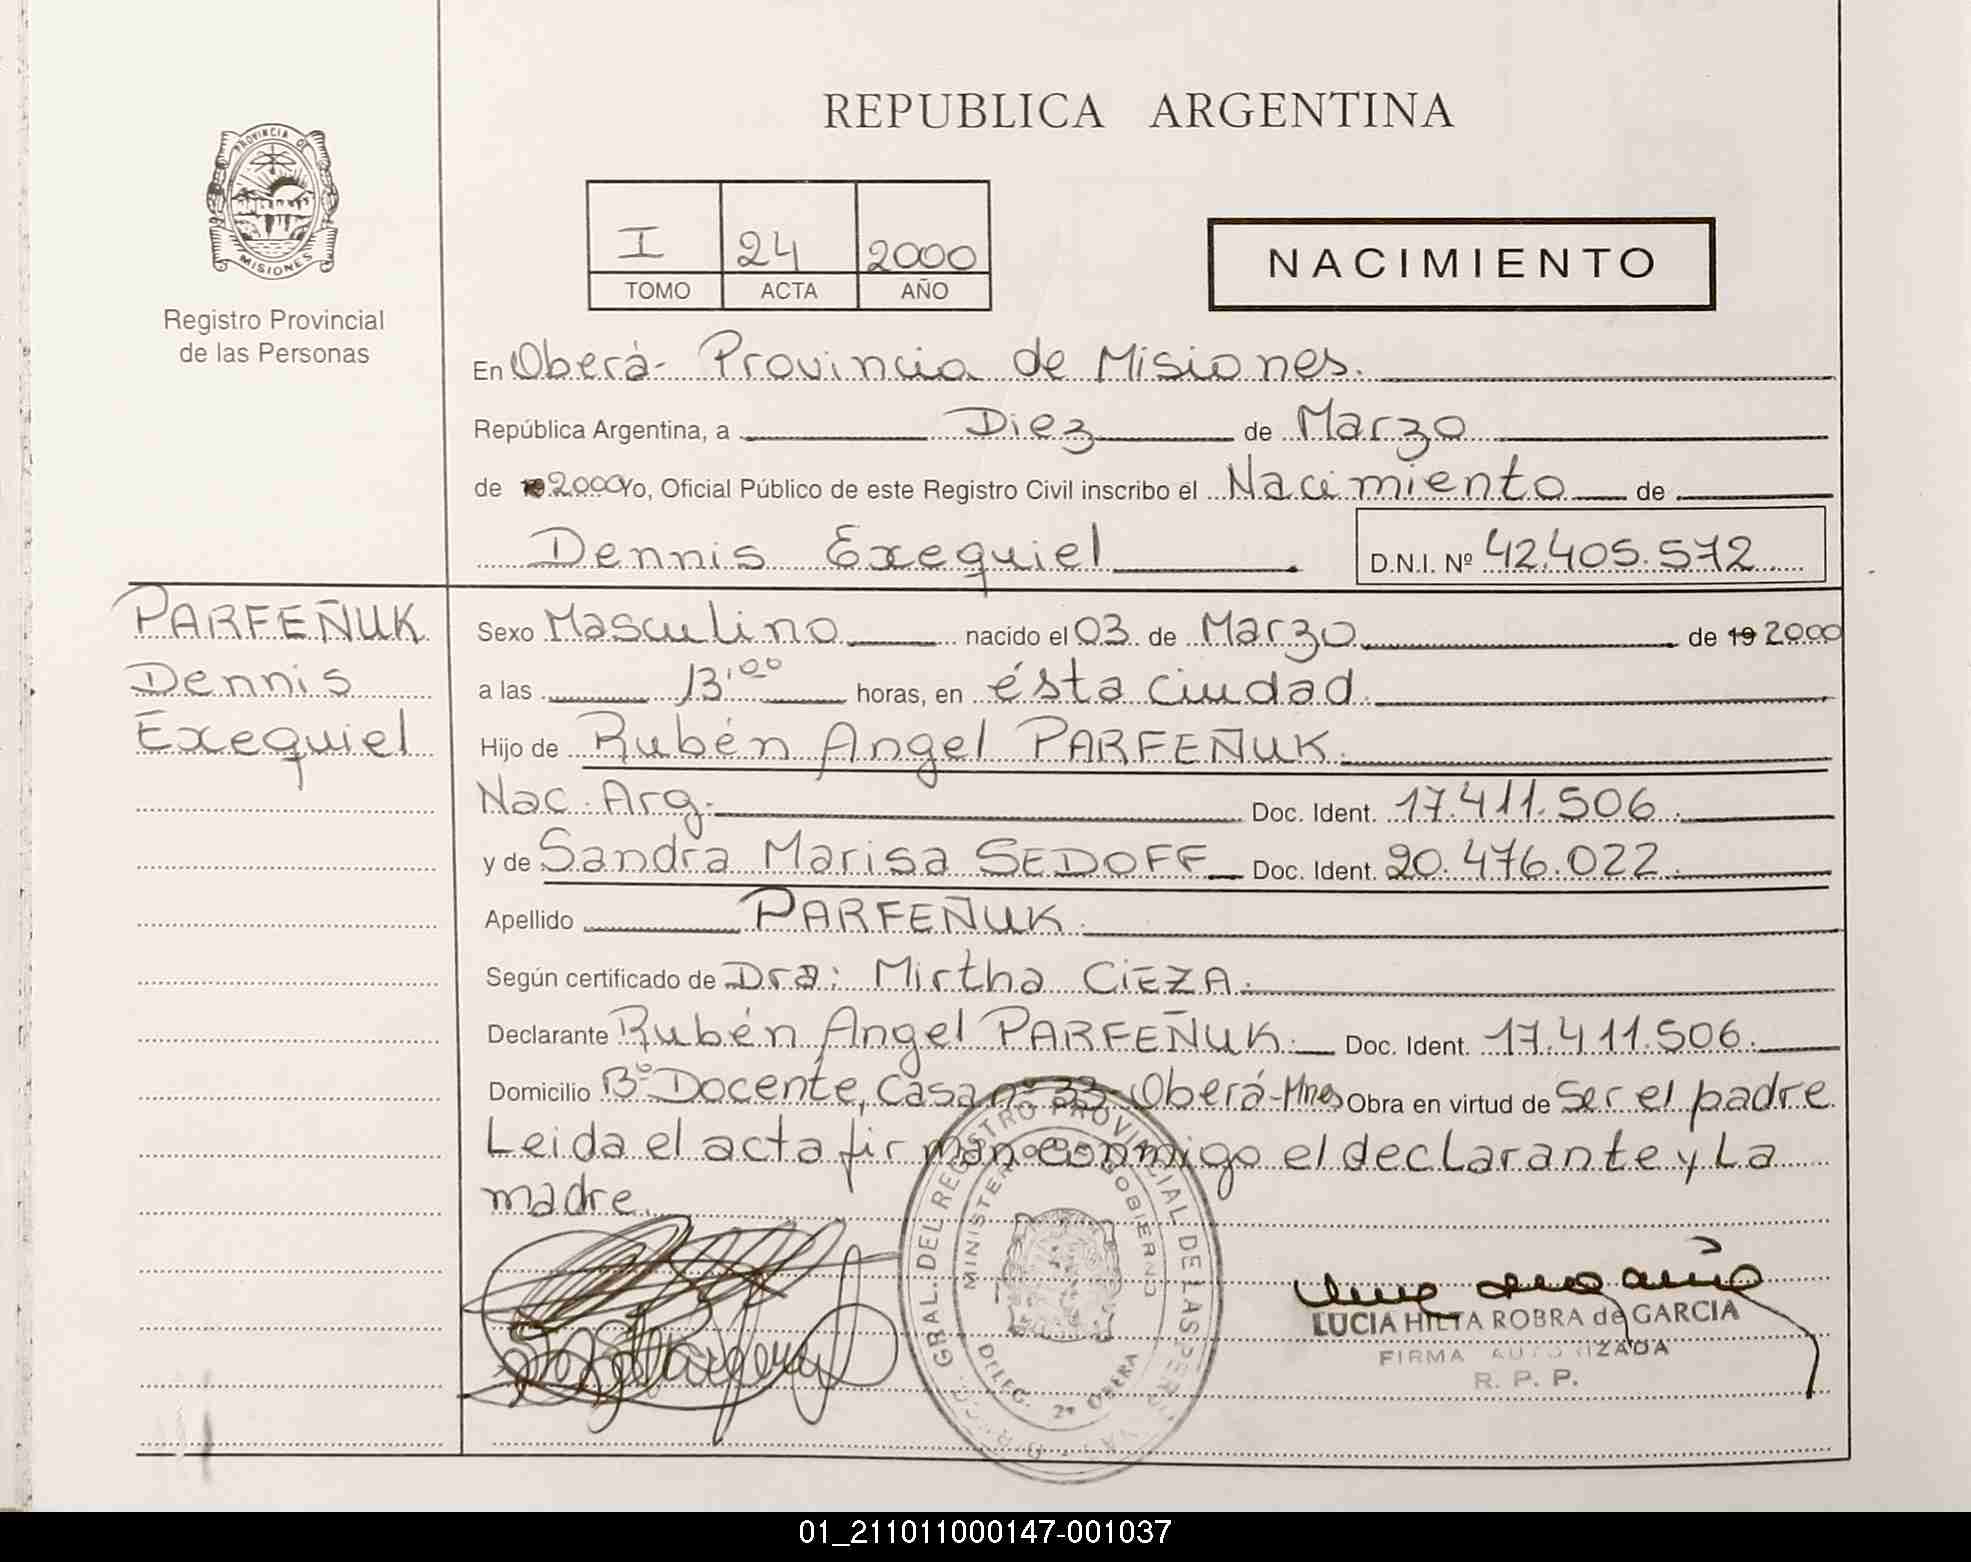 REPUBLICA ARGENTINA
PROVINCIA DE
MISIONES
Registro Provincial
de las Personas
I 24 2000
TOMO ACTA AÑO
NACIMIENTO
En Oberá- Provincia de Misiones.
República Argentina, a Diez de Marzo
de 19 2000 Yo, Oficial Público de este Registro Civil inscribo el Nacimiento de
Dennis Exequiel D.N.I. Nº 42.405.572
PARFEÑUK
Dennis
Exequiel
Sexo Masculino nacido el 03 de Marzo de 19 2000
a las 13,00 horas, en ésta ciudad.
Hijo de Rubén Angel PARFEÑUK.
Nac. Arg. Doc. Ident. 17.411.506.
y de Sandra Marisa SEDOFF Doc. Ident. 20.476.022.
Apellido PARFEÑUK.
Según certificado de Dra: Mirtha CIEZA.
Declarante Rubén Angel PARFEÑUK. Doc. Ident. 17.411.506.
Domicilio Bº Docente, Casa nº 33- Oberá-Mnes Obra en virtud de ser el padre
Leida el acta firman conmigo el declarante y La
madre.
GRAL. DEL REGISTRO PROVINCIAL DE LAS PER
MINISTER GOBIERNO
DELEG. 2ª OBERA
LUCIA HILTA ROBRA de GARCIA
FIRMA AUTORIZADA
R. P. P.
01_211011000147-001037